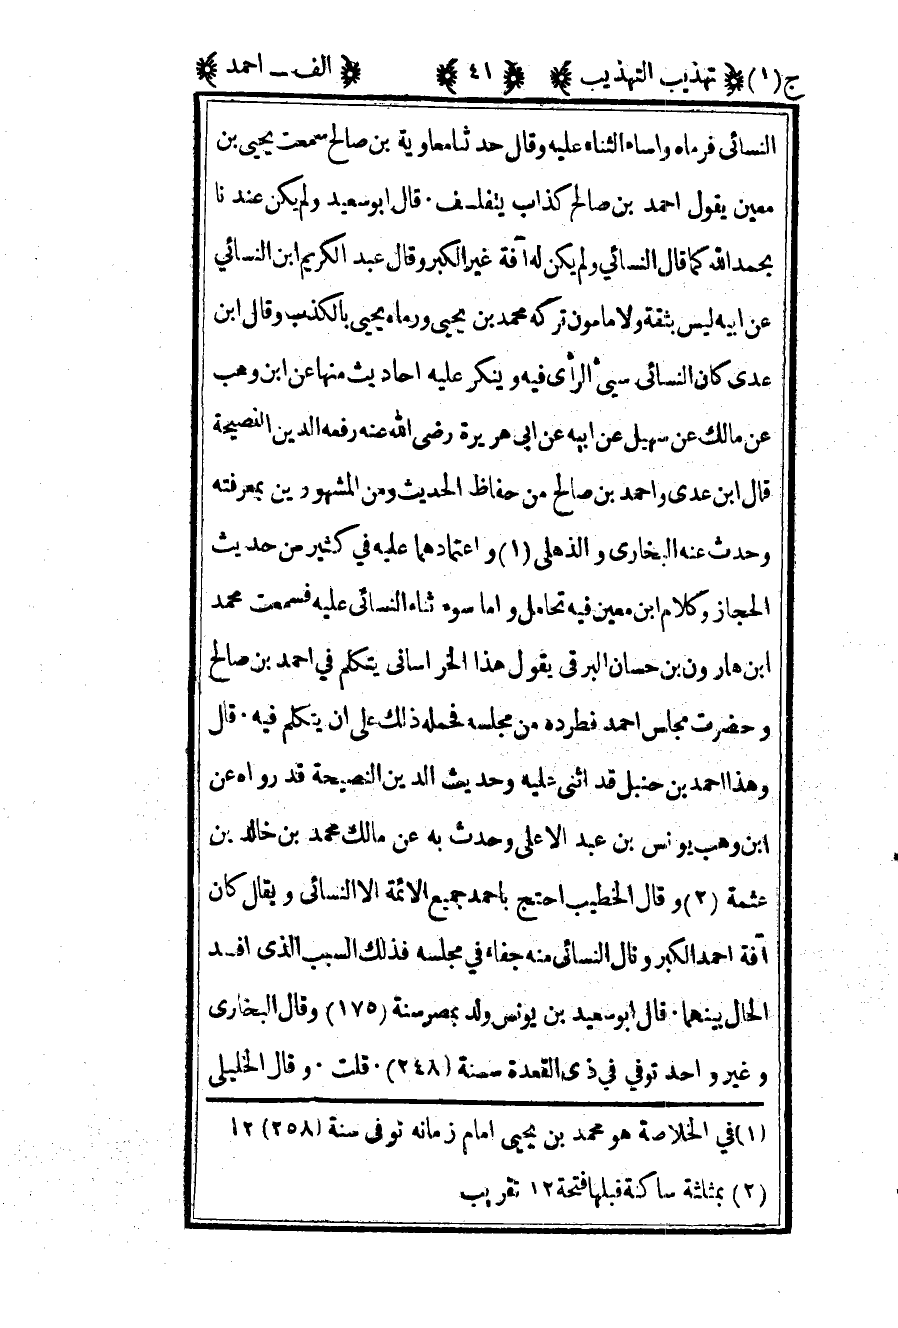 ج(١) تهذيب التهذيب ٤١ الف ـ احمد
النسائى فرماه واساء الثناء عليه وقال حد ثنا معاوية بن صالح سمعت يحيى بن
معين يقول احمد بن صالح كذاب يتفلسف · قال ابو سعيد ولم يكن عند نا
بحمد الله كما قال النسائي ولم يكن له آفة غير الكبر وقال عبد الكريم ابن النسائي
عن ابيه ليس بثقة ولا مامون تركه محمد بن يحيى ورماه يحيى بالكذب وقال ابن
عدى كان النسائى سيئ الرأى فيه و ينكر عليه احاديث منها عن ابن وهب
عن مالك عن سهيل عن ابيه عن ابى هريرة رضى الله عنه رفعه الدين النصيحة
قال ابن عدى واحمد بن صالح من حفاظ الحديث ومن المشهورين بمعرفته
وحدث عنه البخارى و الذهلى (١) و اعتمادهما عليه في كثير من حديث
الحجاز وكلام ابن معين فيه تحامل و اما سوء ثناء النسائى عليه فسمعت محمد
ابن هارون بن حسان البرقى يقول هذا الخراسانى يتكلم في احمد بن صالح
و حضرت مجلس احمد فطرده من مجلسه فحمله ذلك على ان يتكلم فيه · قال
وهذا احمد بن حنبل قد اثنى عليه وحديث الدين النصيحة قد رواه عن
ابن وهب يونس بن عبد الاعلى وحدث به عن مالك محمد بن خالد بن
عثمة (٢) و قال الخطيب احتج باحمد جميع الائمة الا النسائى و يقال كان
آفة احمد الكبر و نال النسائى منه جفاء في مجلسه فذلك السبب الذى افسد
الحال بينهما · قال ابو سعيد بن يونس ولد بمصر سنة (١٧٥) وقال البخارى
و غير و احد توفي في ذى القعدة سنة (٢٤٨) · قلت · و قال الخليلى
(١) في الخلاصة هو محمد بن يحيى امام زمانه توفى سنة (٢٥٨) ١٢
(٢) بمثلثة ساكنة قبلها فتحة ١٢ تقريب